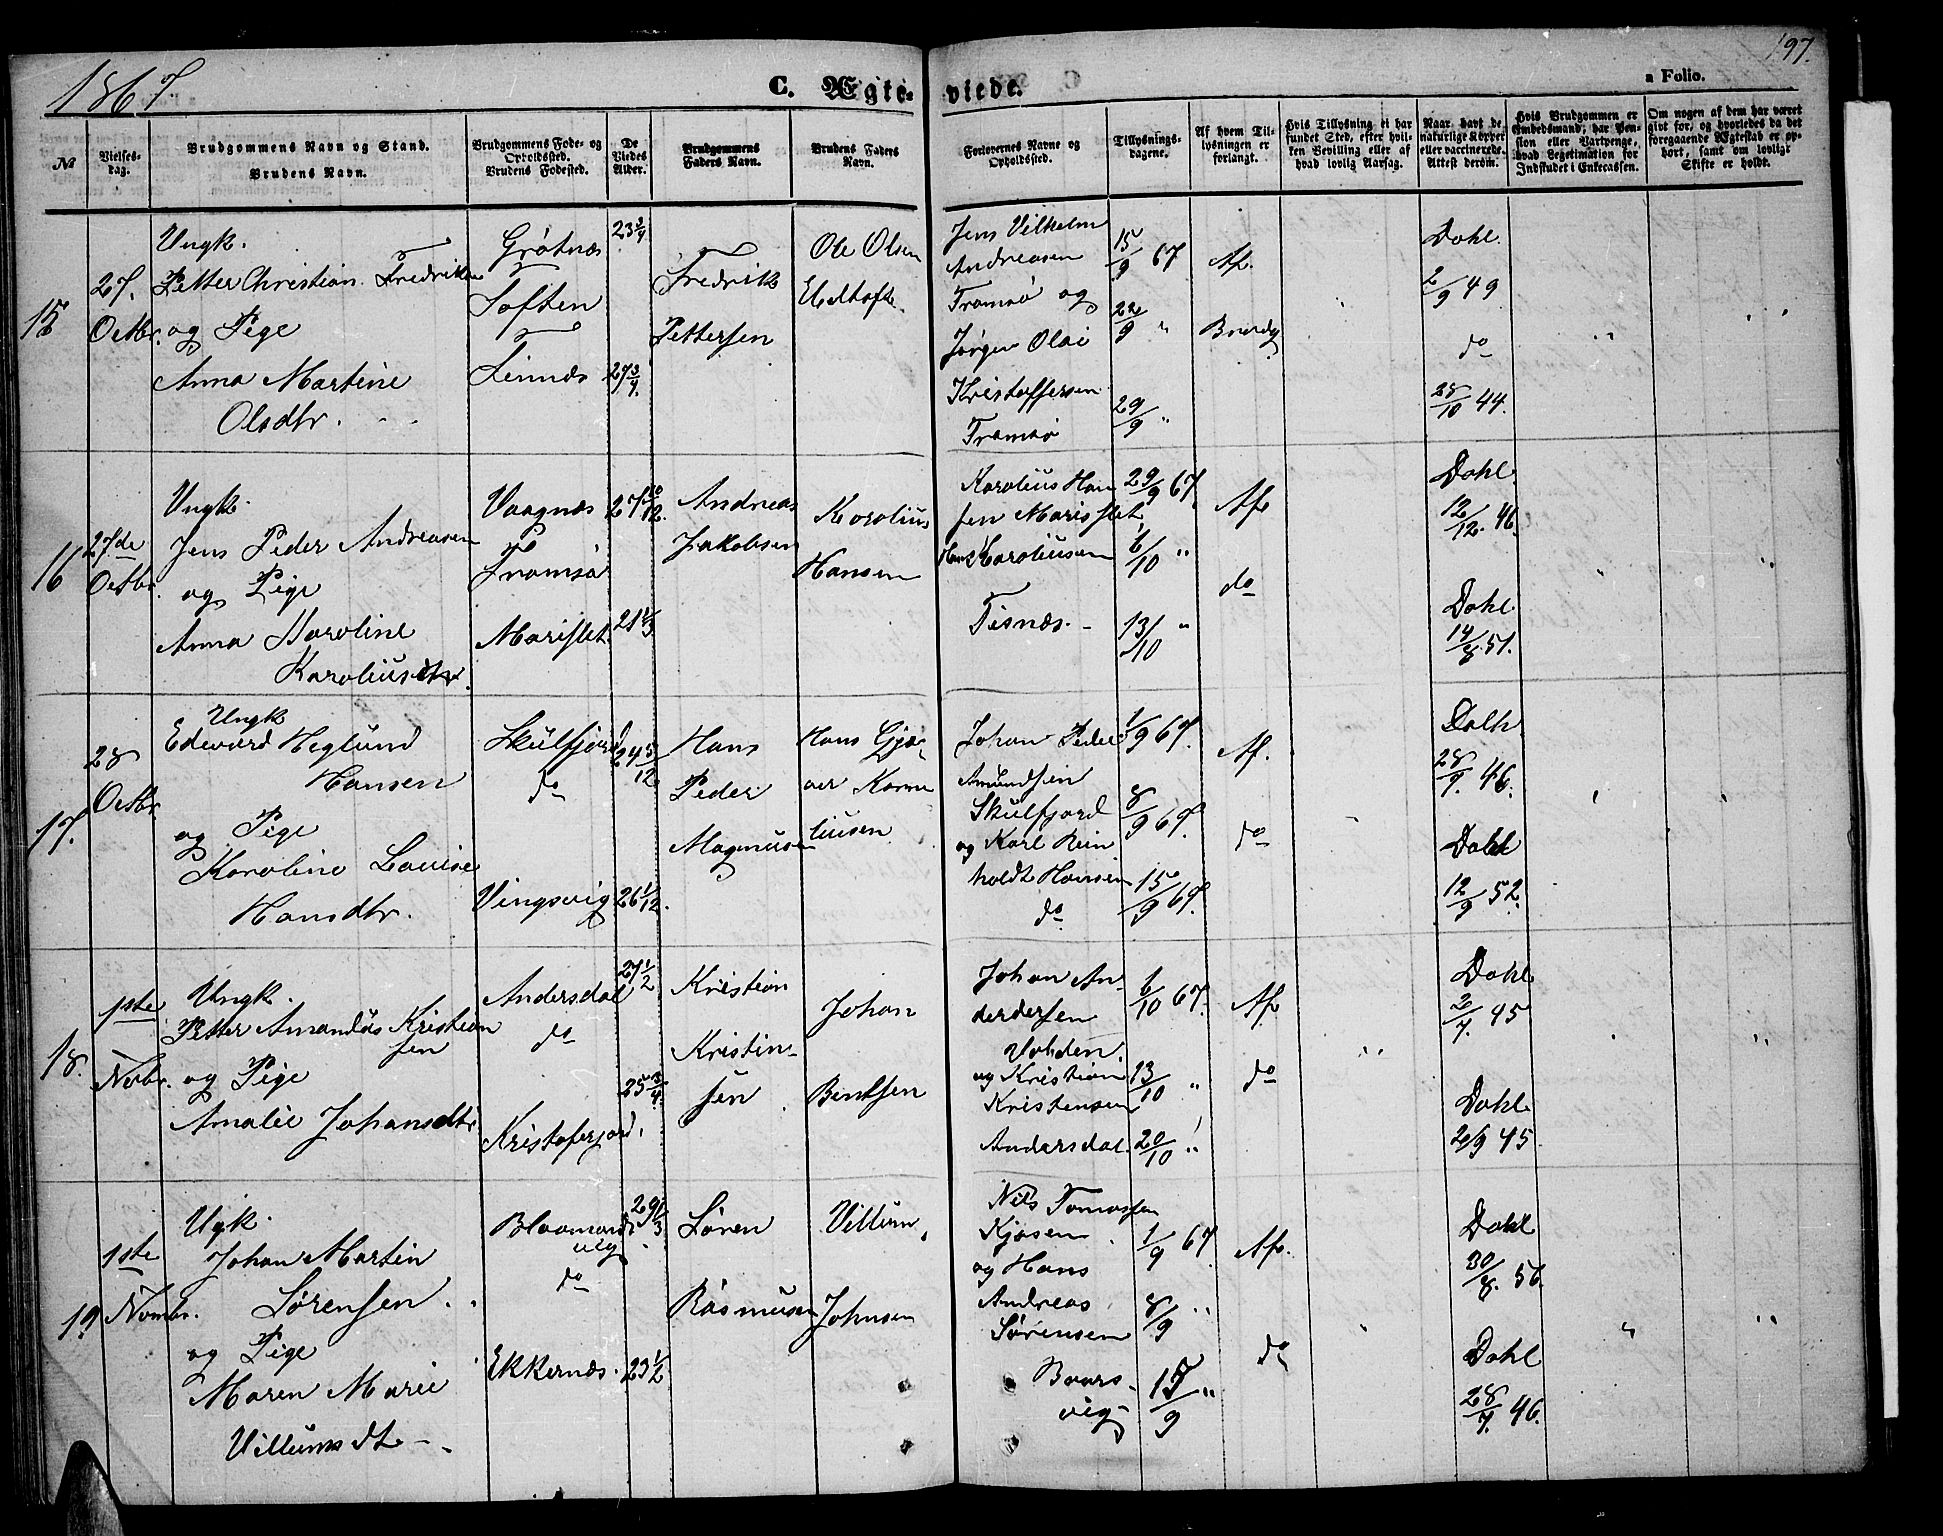 1867
197.
C. Ægte- viede.
a Folio.
№
Vielses-
dag.
Brudgommens Navn og Stand.
Brudens Navn.
Brudgommens Føde- og
Opholdssted.
Brudens Fødested.
De
Viedes
Alder.
Brudgommens
Faders Navn.
Brudens Faders
Navn.
Forlovernes Navne og
Opholdssted.
Tillysnings-
dagene.
Af hvem Til-
lysningen er
forlangt.
Hvis Tillysning ei har
fundet Sted, efter hvil-
ken Bevilling eller af
hvad lovlig Aarsag.
Naar havt de
naturlige Kopper
eller vaccinerede.
Attest derom.
Hvis Brudgommen er
Embedsmand, har Pen-
sion eller Vartpenge,
hvad Legitimation for
Indskudet i Enkecassen.
Om nogen af dem har været
givt før, og hvorledes da det
foregaaende Ægtestad er op-
hørt, samt om lovligt
Skifte er holdt.
15
27.
Octbr.
Ungk.
Petter Christian Fredriksen
og Pige
Anna Martine
Olsdtr.
Grøtnæs
Toften
Finnæs
23 3/4
27 3/4.
Fredrik
Pettersen
Ole Olsen
Jens Vilhelm
Andreasen
Tromsø og
Jørgen Olai
Kristoffersen
Tromsø
15/9 67
22/9 "
29/9 "
Af.
Brudg
Dahl.
2/9 49
do
28/10 44.
16
27de
Octbr.
Ungk.
Jens Peder Andreasen
og Pige
Anna Karoline
Karoliusdtr.
Vaagnæs
Tromsø
Marislet.
27 10/12.
21 1/3
Andreas
Jakobsen
Karolius
Hansen
Karolius Han
sen Marislet
Hans Karoliusen
Tisnæs.
29/9 67
6/10 "
13/10 "
Af
do
Dahl
12/12. 46.
Dahl
14/8. 51.
17.
28
Octbr
Ungk
Edevard Heglund
Hansen
og Pige
Karoline Lovise
Hansdtr.
Skulfjord
do
Vingsvig
24 5/12
26 1/12.
Hans
Peder
Magnusen
Hans Gjæ-
ver Korne
liusen
Johan Peder
Amundsen
Skulfjord
og Karl Rein
holdt Hansen
do
1/9 67.
8/9 67.
15/9 67.
Af.
do
Dalh
28/9. 46.
Dahl
12/9 52.
18.
1ste
Novbr.
Ungk.
Petter Amandus Kristian
sen
og Pige
Amalie Johansdtr
Andersdal
do
Kristoferjord
27 1/2
25 3/4.
Kristian
Kristin-
sen
Johan
Bentsen
Johan An-
dersen
og Kristian
Kristensen
Andersdal.
6/10 67.
13/10 "
20/10 "
Af
do
Dahl
2/7. 45
Dahl
20/9 45
19
1ste
Novmbr.
Ugk.
Johan Martin
Sørensen
og Pige
Maren Marie
Villumsdt
Blaamands
vig
do
Ekkernæs.
29 1/3
23 1/2
Søren
Rasmusen
Villum
Johnsen
Nils Tomassen
Kjosen
og Hans
Andreas
Sørensen
Baars-
vig
1/9 67
8/9 "
15/9 "
Af.
do
Dahl
30/8. 56
Dahl
28/7. 46.